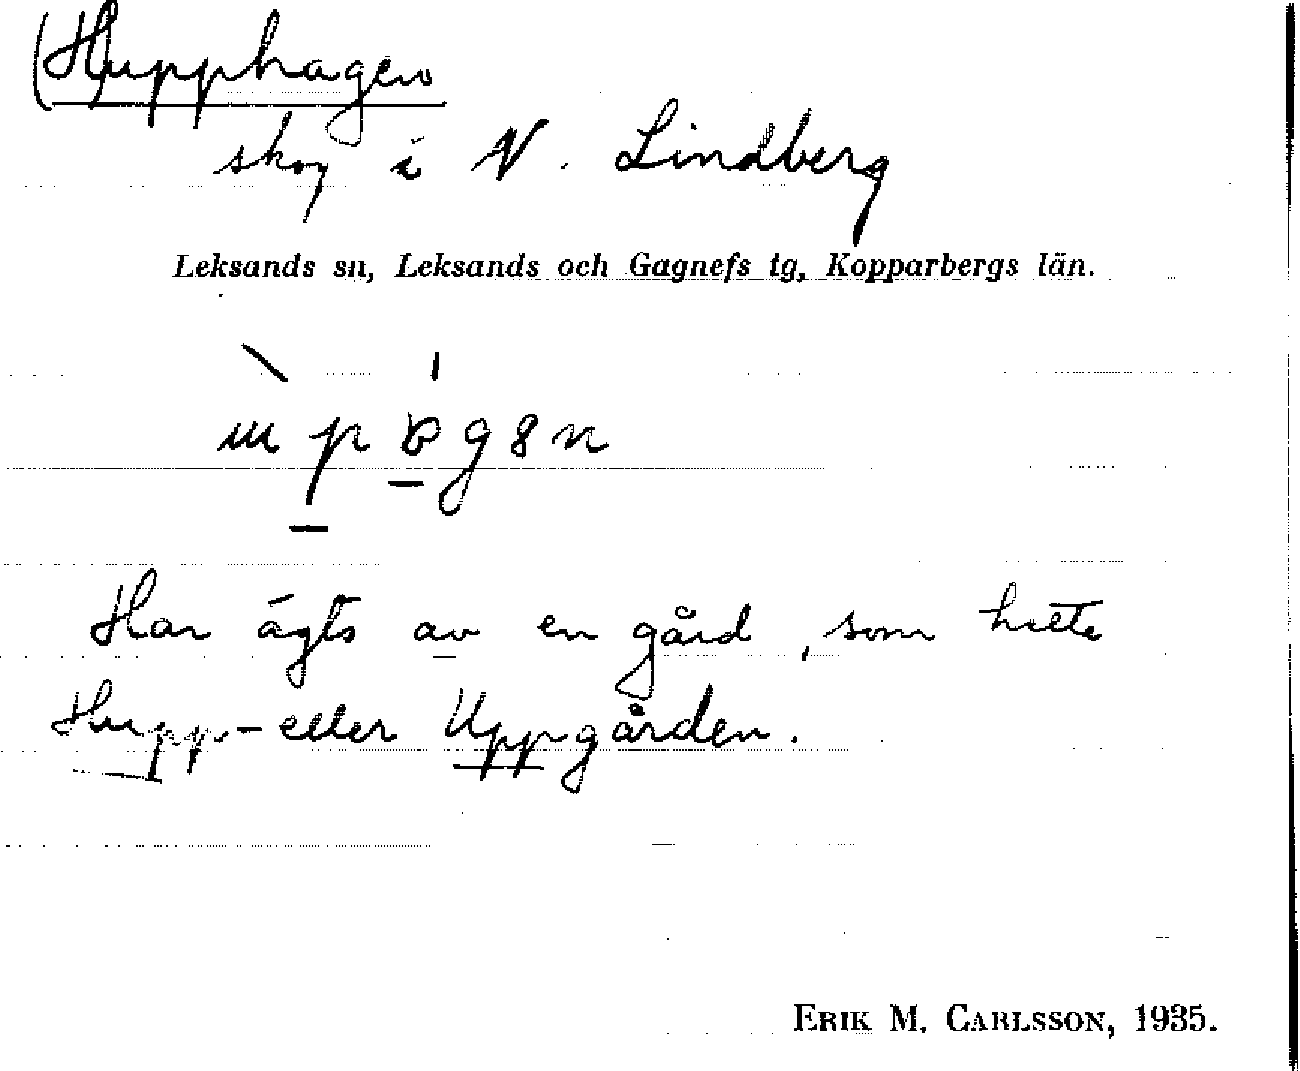 (H)upphagen
skog i N. Lindberg
Leksands sn, Leksands och Gagnefs tg, Kopparbergs län.
Har ägts av en gård, som hette
Hupp- eller Uppgården.
ERIK M. CARLSSON, 1935.